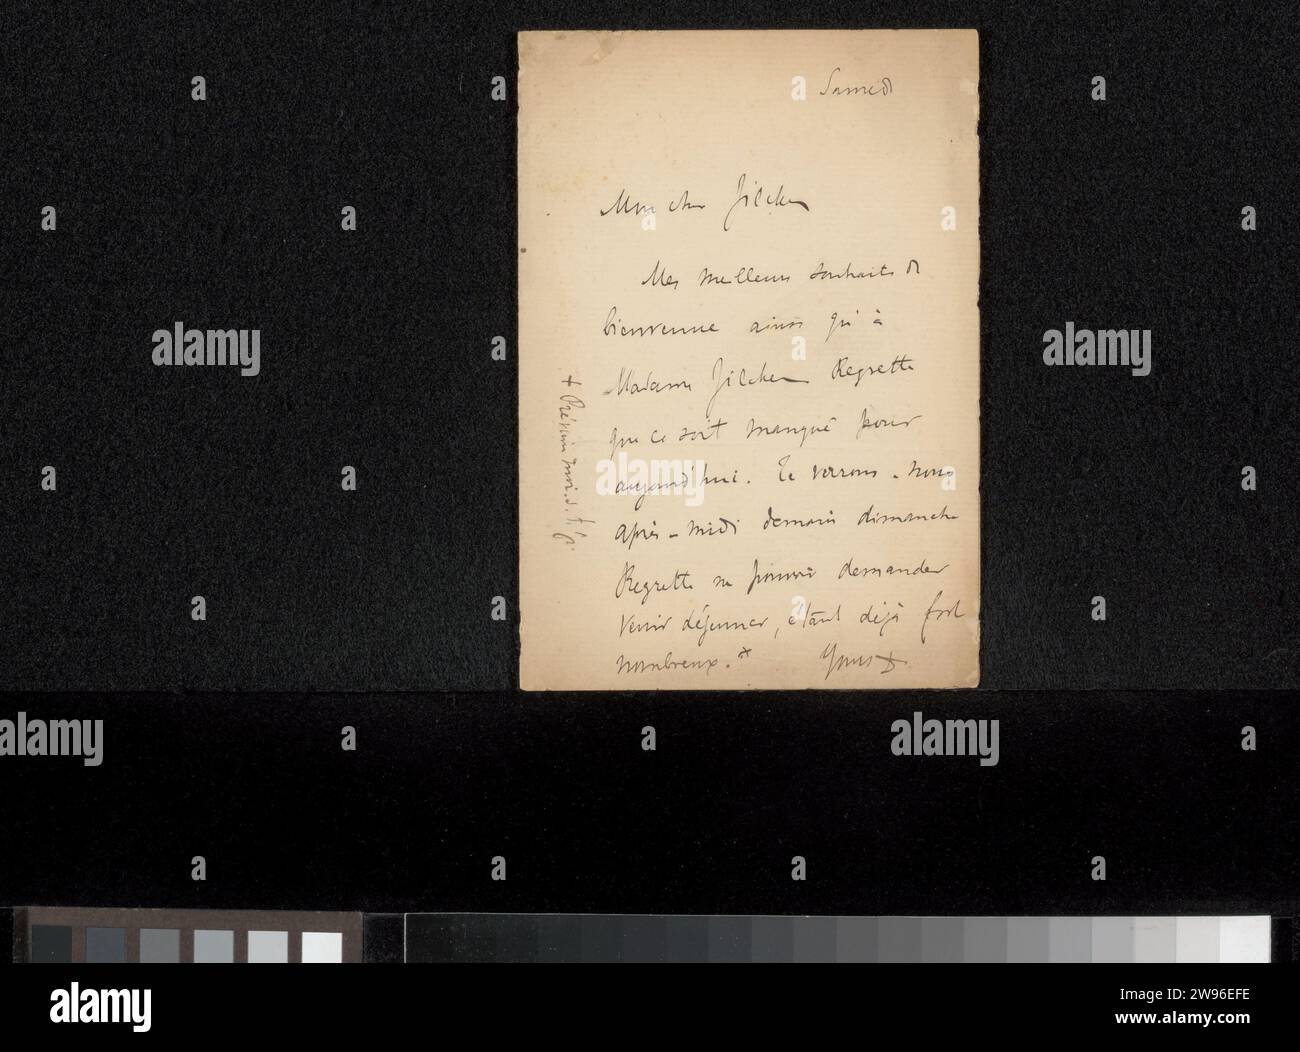 Samedi
Mon cher Zilcken
Mes meilleurs souhaits de
bienvenue ainsi qu'à
Madame Zilcken Regrette
que ce soit manqué pour
aujourd'hui. Te verrons-nous
après-midi demain dimanche
Regrette ne pouvoir demander
venir déjeuner, étant déjà fort
nombreux.* Yours
+ Préviens moi. s. t. p.
alamy
Image ID: 2W96EFE
www.alamy.com